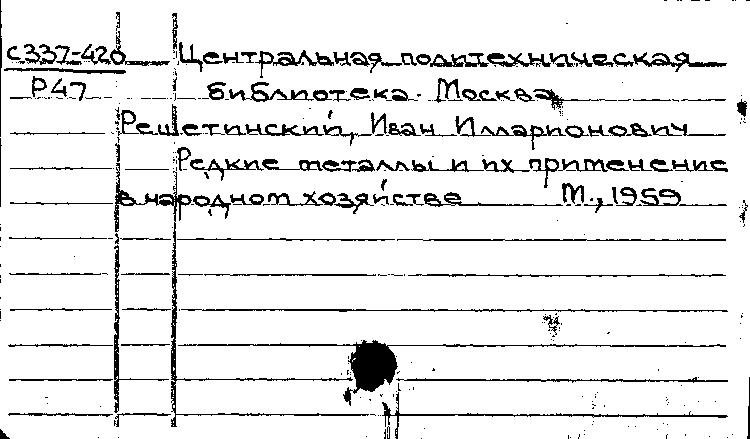 С337-420 Центральная политехническая
Р47 библиотека. Москва
Решетинский, Иван Илларионович
Редкие металлы и их применение
в народном хозяйстве М., 1959